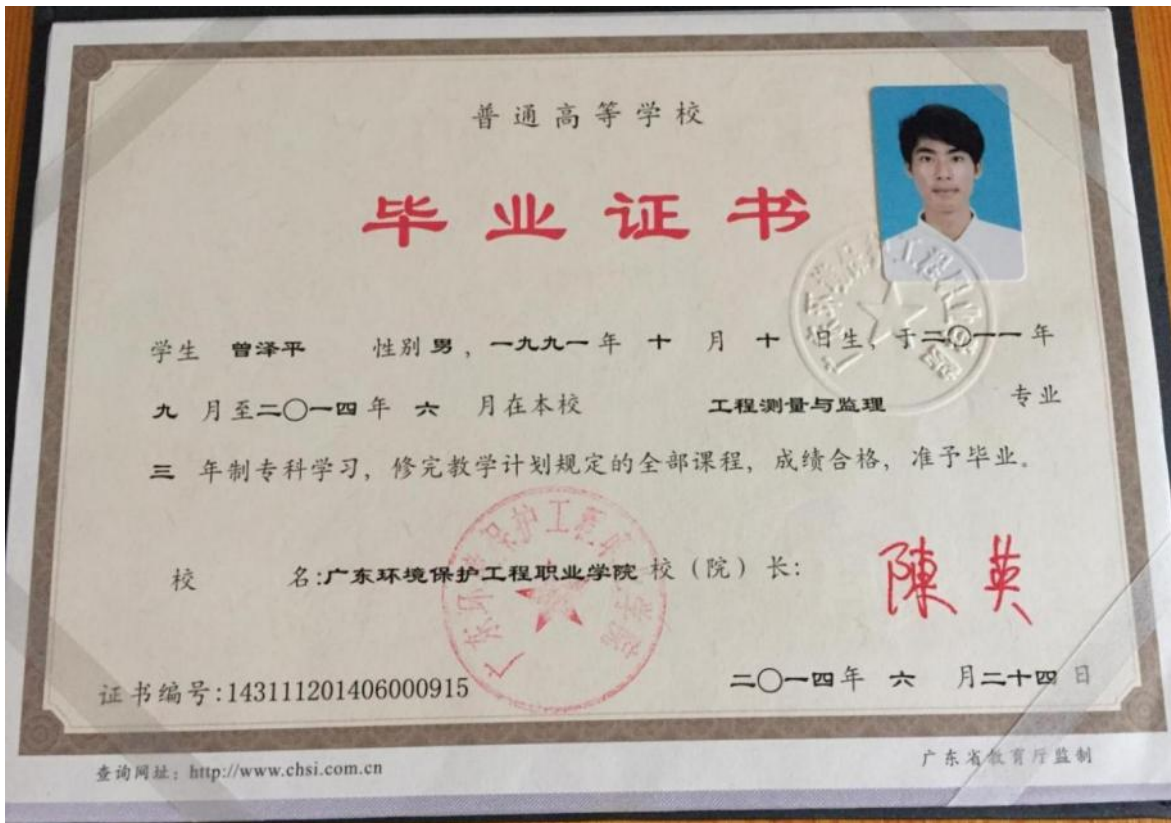 普通高等学校
毕业证书
学生 曾泽平 性别 男 , 一九九一 年 十 月 十 日生, 于二〇一一 年
九 月至二〇一四 年 六 月在本校 工程测量与监理 专业
三 年制专科学习, 修完教学计划规定的全部课程, 成绩合格, 准予毕业。
校 名:广东环境保护工程职业学院 校(院)长: 陳英
广东环境保护工程职业学院
广东环境保护工程职业学院
证书编号:143111201406000915 二〇一四 年 六 月二十四 日
查询网址: http://www.chsi.com.cn 广东省教育厅监制